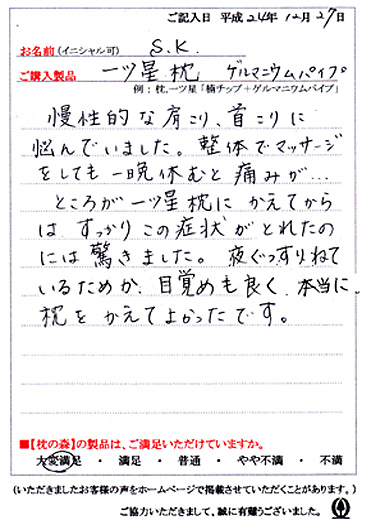 ご記入日 平成24年12月27日
お名前(イニシャル可) S.K.
ご購入製品 一ツ星枕 ゲルマニウムパイプ
例:枕、一ツ星「楠チップ+ゲルマニウムパイプ」
慢性的な肩こり、首こりに
悩んでいました。整体でマッサージ
をしても一晩休むと痛みが…
ところが一ツ星枕にかえてから
は、すっかりこの症状がとれたの
には驚きました。夜ぐっすりねて
いるためか、目覚めも良く、本当に
枕をかえてよかったです。
■【枕の森】の製品は、ご満足いただけていますか。
大変満足 ・ 満足 ・ 普通 ・ やや不満 ・ 不満
(いただきましたお客様の声をホームページで掲載させていただくことがあります。)
ご協力いただきまして、誠に有難うございました。